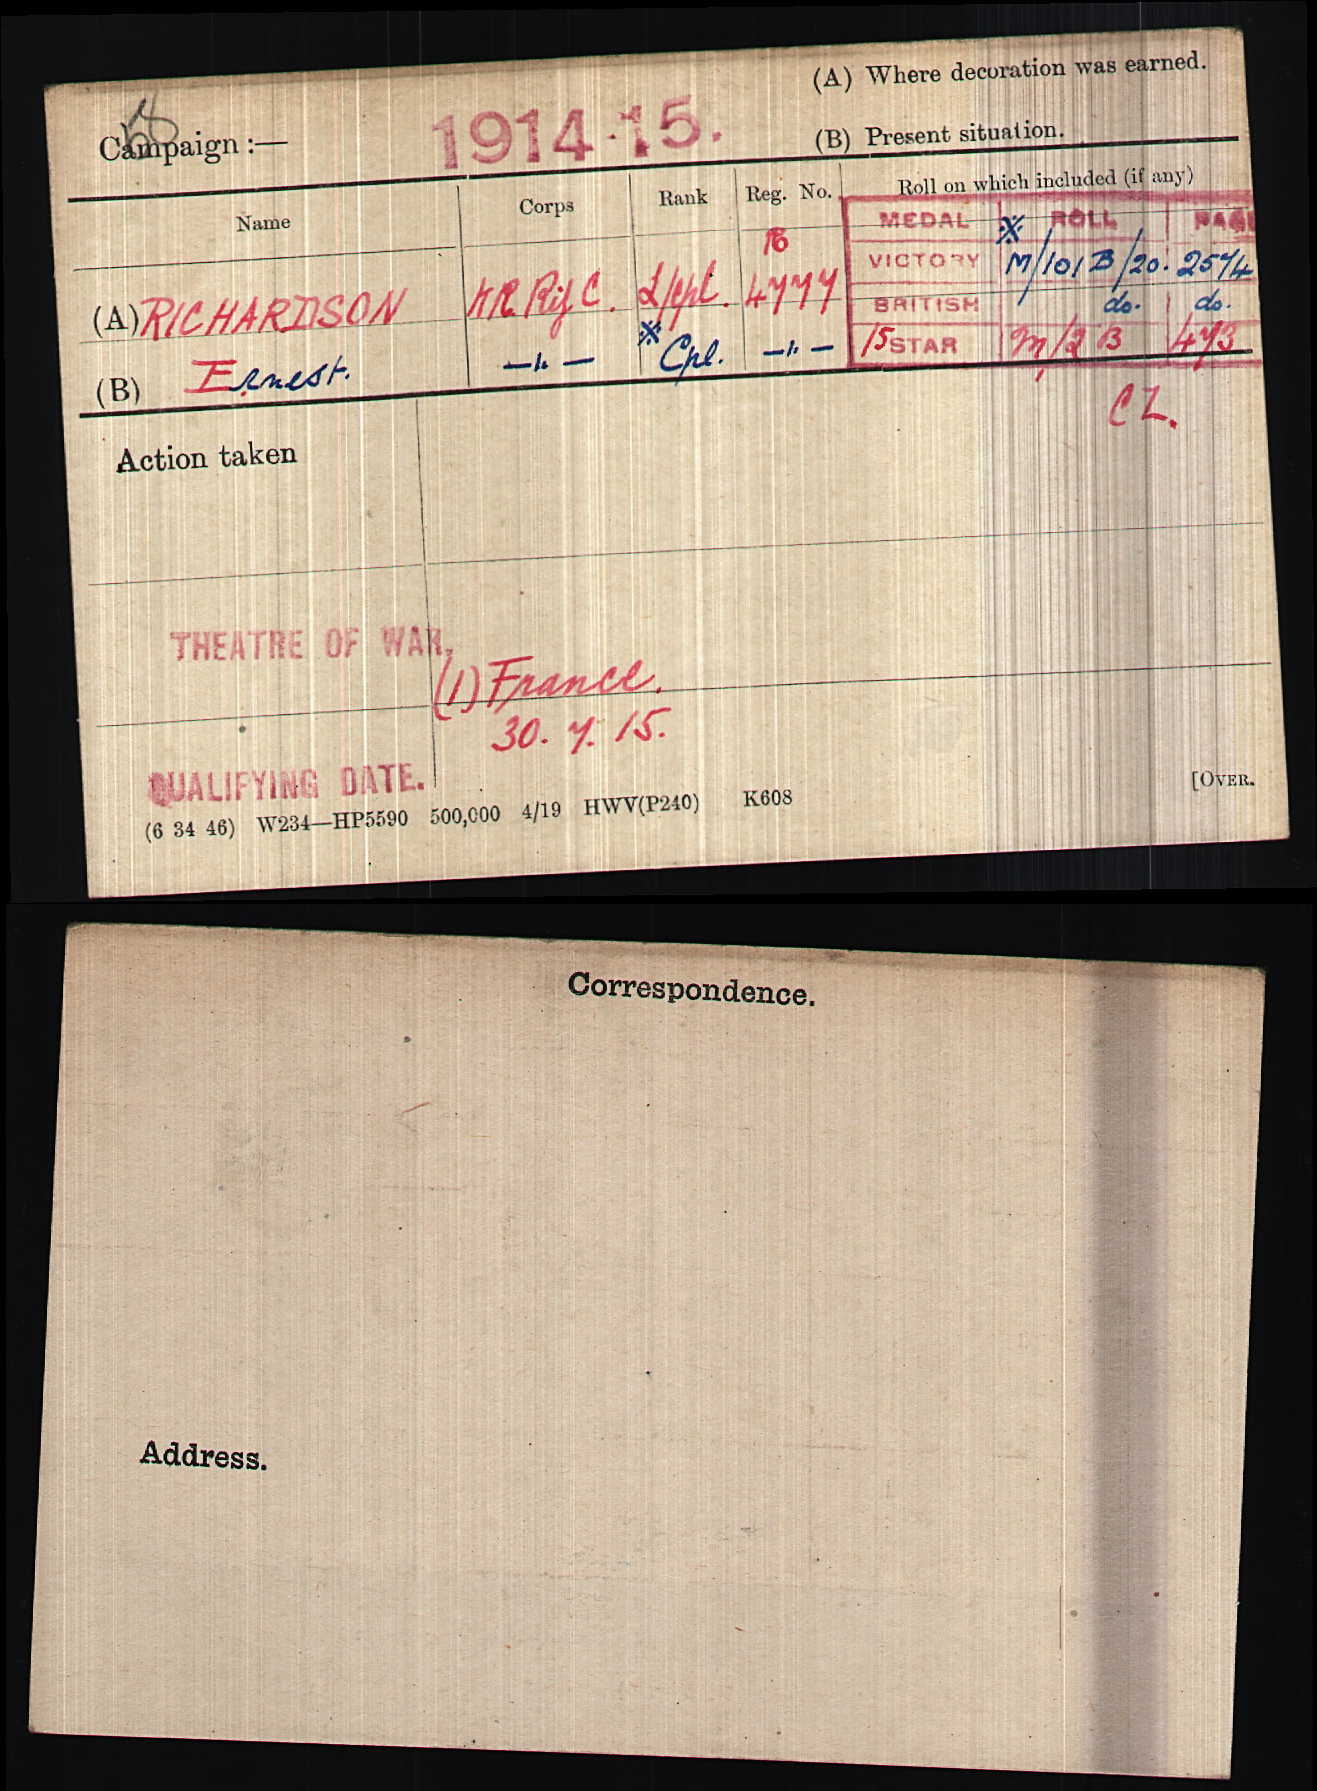 (A) Where decoration was earned.
Campaign :— 1914-15. (B) Present situation.
Name Corps Rank Reg. No. Roll on which included (if any)
MEDAL ※ ROLL PAGE
16 VICTORY M/101B/20. 2574
(A) RICHARDSON K.R. Rif C. L/Cpl. 4777 BRITISH do. do.
(B) Ernest. —"— ※ Cpl. —"— 15 STAR M/2 B 473
CZ.
Action taken
THEATRE OF WAR, (1) France.
30. 7. 15.
QUALIFYING DATE.
[OVER.
(6 34 46) W234—HP5590 500,000 4/19 HWV(P240) K608
Correspondence.
Address.